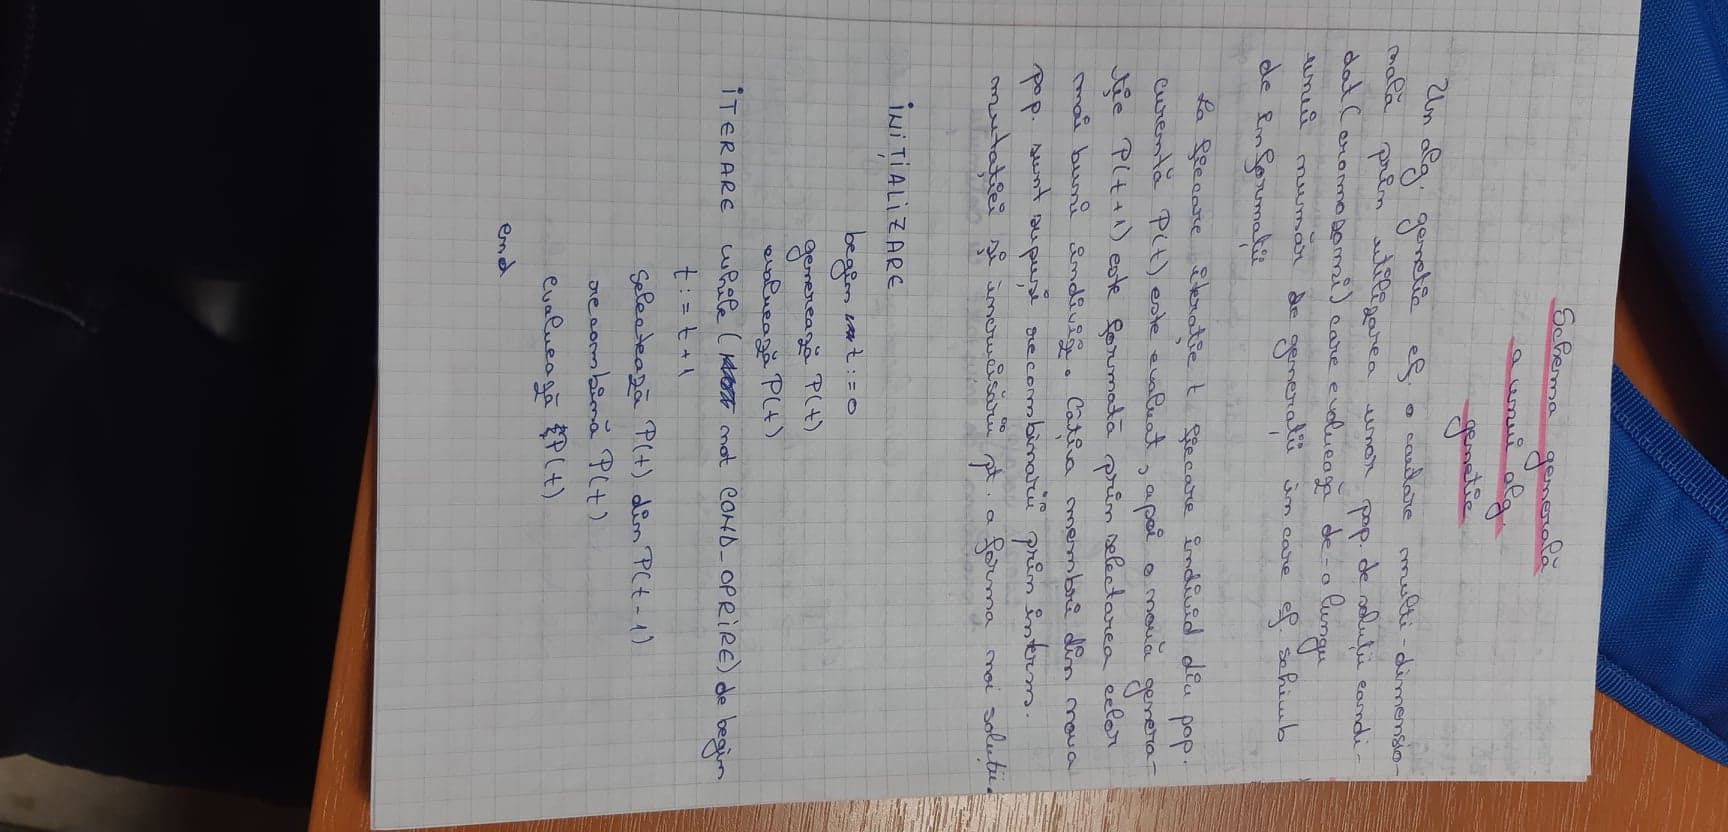 Schema generală
a unui alg.
genetic
Un alg. genetic ef. o căutare multi-dimensio-
nală prin utilizarea unor pop. de soluții candi-
dat (cromozomi) care evoluează de-a lungu
unui număr de generații în care ef. schimb
de informații
La fiecare iterație t fiecare individ din pop.
curentă P(t) este evaluat, apoi o nouă genera-
ție P(t+1) este formată prin selectarea celor
mai buni indiviz. Câțiva membri din noua
pop. sunt supuși recombinării prin interm.
mutației și încrucișării pt. a forma noi soluții.
INIȚIALIZARE
begin t:=0
generează P(t)
evaluează P(t)
ITERARE while (not COND_OPRIRE) de begin
t:=t+1
selectează P(t) din P(t-1)
recombină P(t)
evaluează P(t)
end